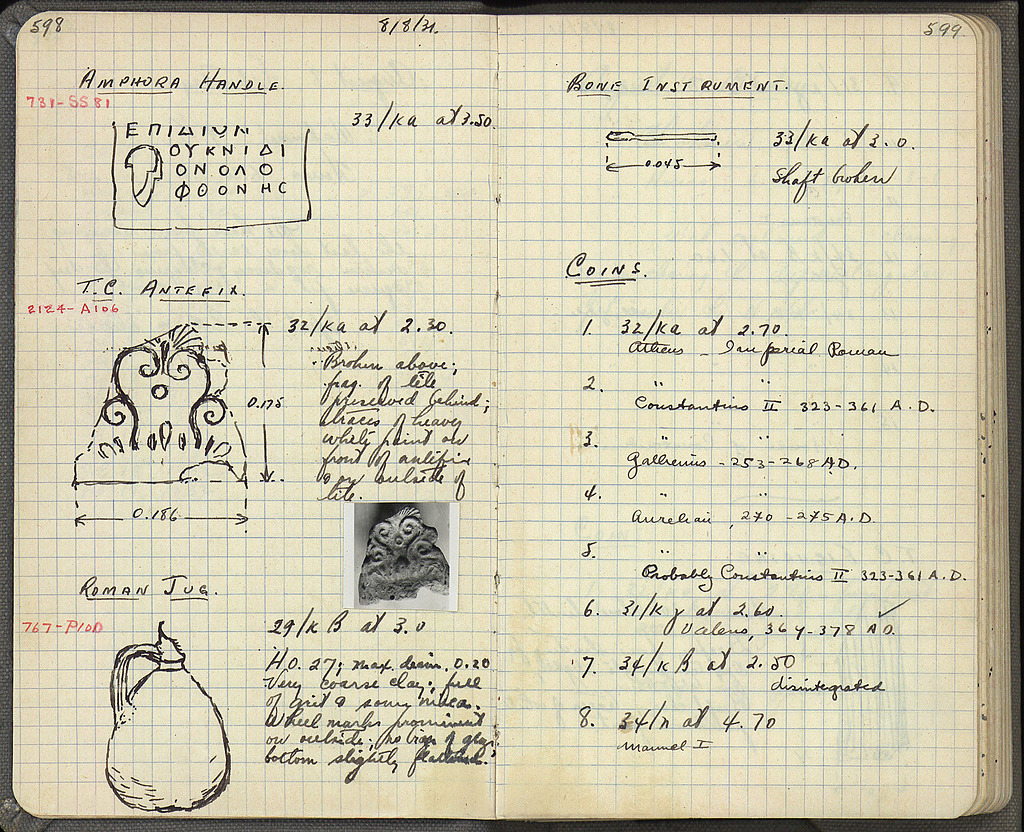 598
8/8/31.
AMPHORA HANDLE.
781-SS81
33/ΚΑ at 3.50.
ΕΠΙΔΙΟΝ
ΟΥΚΝΙΔΙ
ΟΝΟΛΟ
ΦΘΟΝΗC
T.C. ANTEFIX.
2124-A106
32/ΚΑ at 2.30.
Broken above;
frag. of tile
preserved behind;
traces of heavy
white paint on
front of antefix
& on outside of
tile.
0.175
0.186
ROMAN JUG.
767-P100
29/Κ Β at 3.0
H. 0.27; max. diam. 0.20
Very coarse clay; full
of grit & some mica.
Wheel marks prominent
on outside; no
bottom slightly flattened.
599
BONE INSTRUMENT.
33/ΚΑ at 3.0.
0.045
Shaft broken
COINS.
1. 32/ΚΑ at 2.70.
Athens - Imperial Roman
2. " "
Constantius II 323-361 A.D.
3. " "
Gallienus - 253-268 A.D.
4. " "
Aurelian, 270-275 A.D.
5. " "
Probably Constantius II 323-361 A.D.
6. 31/Κ γ at 2.60. ✓
Valens, 364-378 A.D.
7. 34/Κ Β at 2.50
disintegrated
8. 34/Π at 4.70
Manuel I